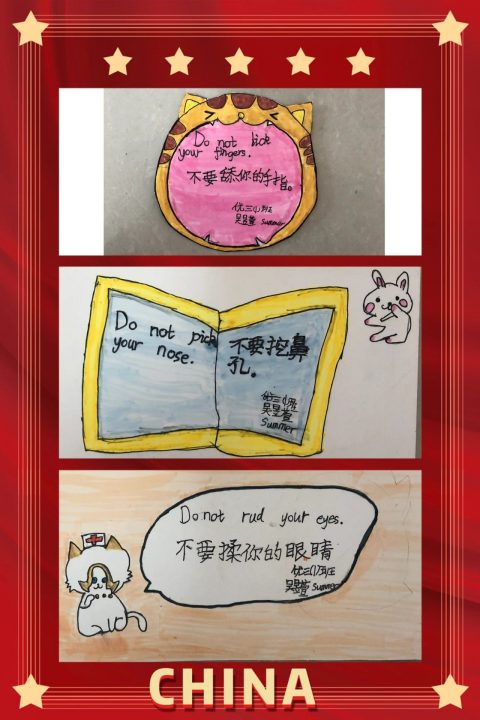 Do not lick
your fingers.
不要舔你的手指。
优三(1)班
Summer
Do not pick
your nose.
不要挖鼻
孔。
优三(1)班
Summer
Do not rud your eyes.
不要揉你的眼睛
优三(1)班
Summer
CHINA